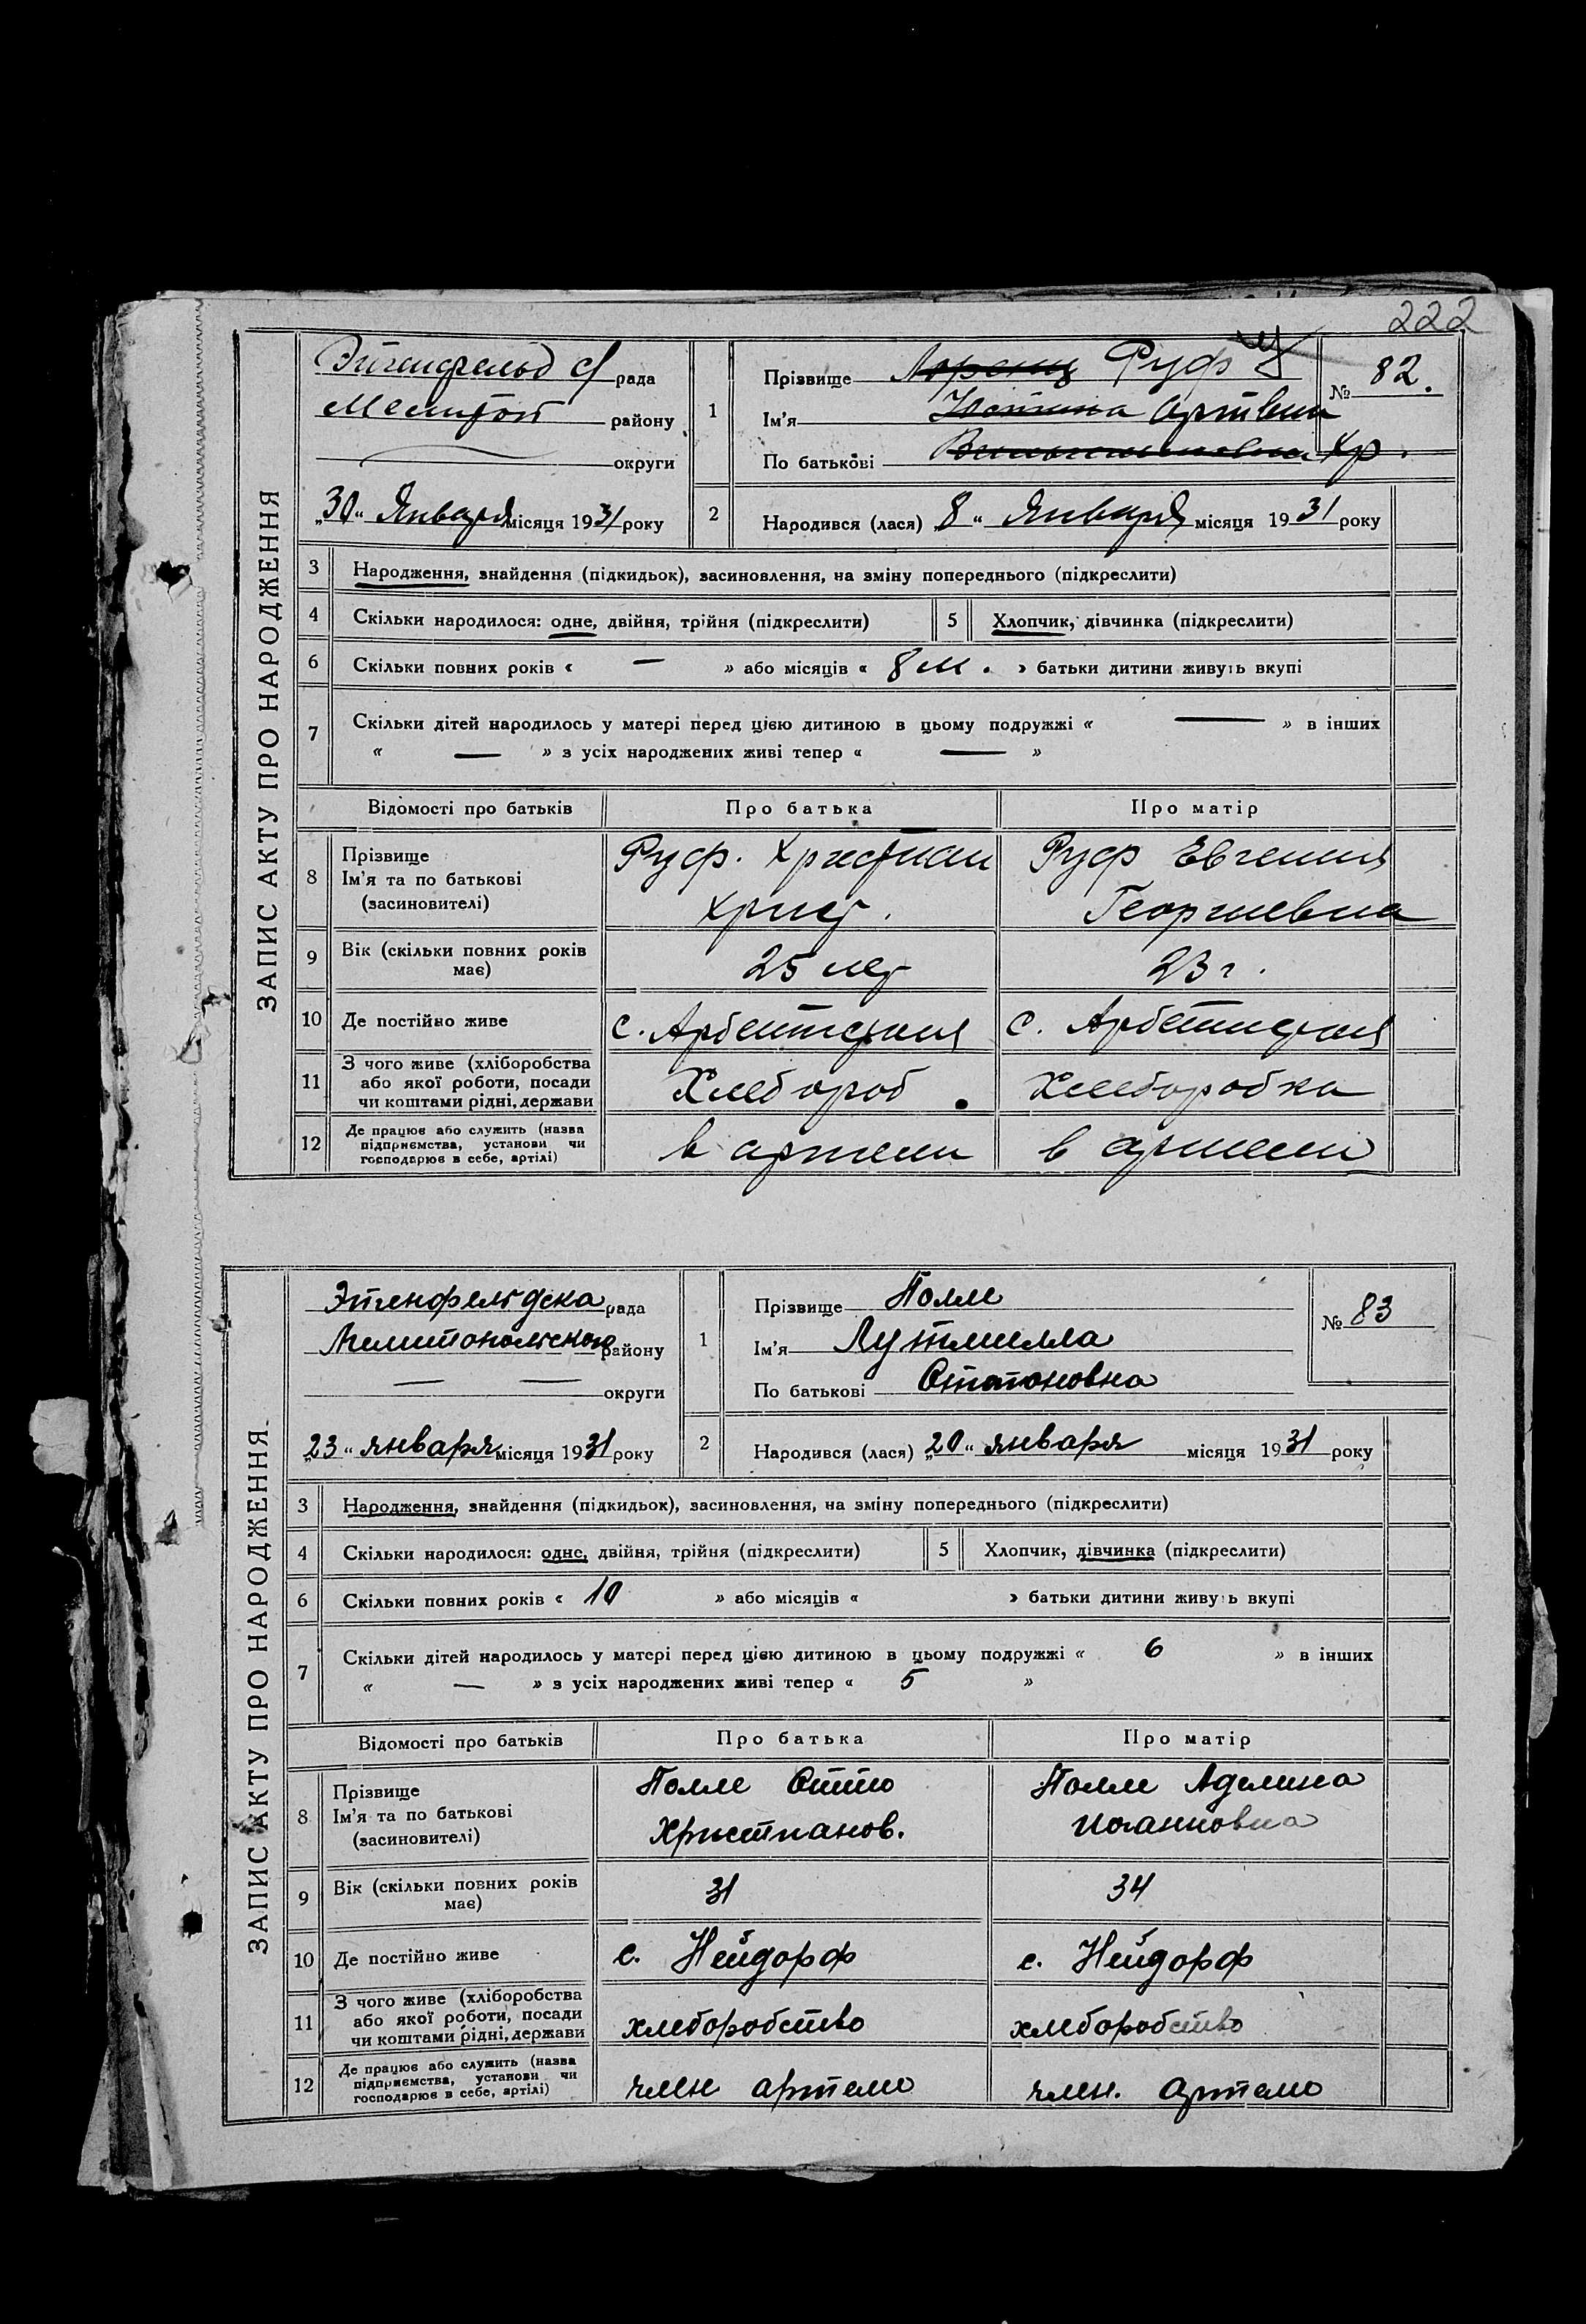 222
ЗАПИС АКТУ ПРО НАРОДЖЕННЯ
Этигенфельд с/ рада
Мелитоп району
округи
„30“ Января місяця 1931 року
1
Прізвище Лоренц Руф
Ім’я Артвин
По батькові Хр.
№ 82.
2
Народився (лася) „8“ Января місяця 1931 року
3 Народження, знайдення (підкидьок), засиновлення, на зміну попереднього (підкреслити)
4 Скільки народилося: одне, двійня, трійня (підкреслити) 5 Хлопчик, дівчинка (підкреслити)
6 Скільки повних років « — » або місяців « 8 м. » батьки дитини живуть вкупі
7 Скільки дітей народилось у матері перед цією дитиною в цьому подружжі « — » в інших
« — » з усіх народжених живі тепер « — »
Відомості про батьків Про батька Про матір
8 Прізвище Ім’я та по батькові (засиновителі)
Руф. Християн Христ.
Руф Евгения Георгиевна
9 Вік (скільки повних років має) 25 лет 23 г.
10 Де постійно живе с. с.
11 З чого живе (хліборобства або якої роботи, посади чи коштами рідні, держави Хлебороб Хлеборобка
12 Де працює або служить (назва підприємства, установи чи господарює в себе, артілі) в артели в артели
ЗАПИС АКТУ ПРО НАРОДЖЕННЯ
Этигенфельдска рада
Мелитопольского району
— — округи
„23“ января місяця 1931 року
1
Прізвище Полле
Ім’я Лутмилла
По батькові Оттоновна
№ 83
2
Народився (лася) „20“ января місяця 1931 року
3 Народження, знайдення (підкидьок), засиновлення, на зміну попереднього (підкреслити)
4 Скільки народилося: одне, двійня, трійня (підкреслити) 5 Хлопчик, дівчинка (підкреслити)
6 Скільки повних років « 10 » або місяців « » батьки дитини живуть вкупі
7 Скільки дітей народилось у матері перед цією дитиною в цьому подружжі « 6 » в інших
« — » з усіх народжених живі тепер « 5 »
Відомості про батьків Про батька Про матір
8 Прізвище Ім’я та по батькові (засиновителі)
Полле Отто Христианов.
Полле Аделина Иоганновна
9 Вік (скільки повних років має) 31 34
10 Де постійно живе с. Нейдорф с. Нейдорф
11 З чого живе (хліборобства або якої роботи, посади чи коштами рідні, держави хлеборобство хлеборобство
12 Де працює або служить (назва підприємства, установи чи господарює в себе, артілі) член артели член. артели